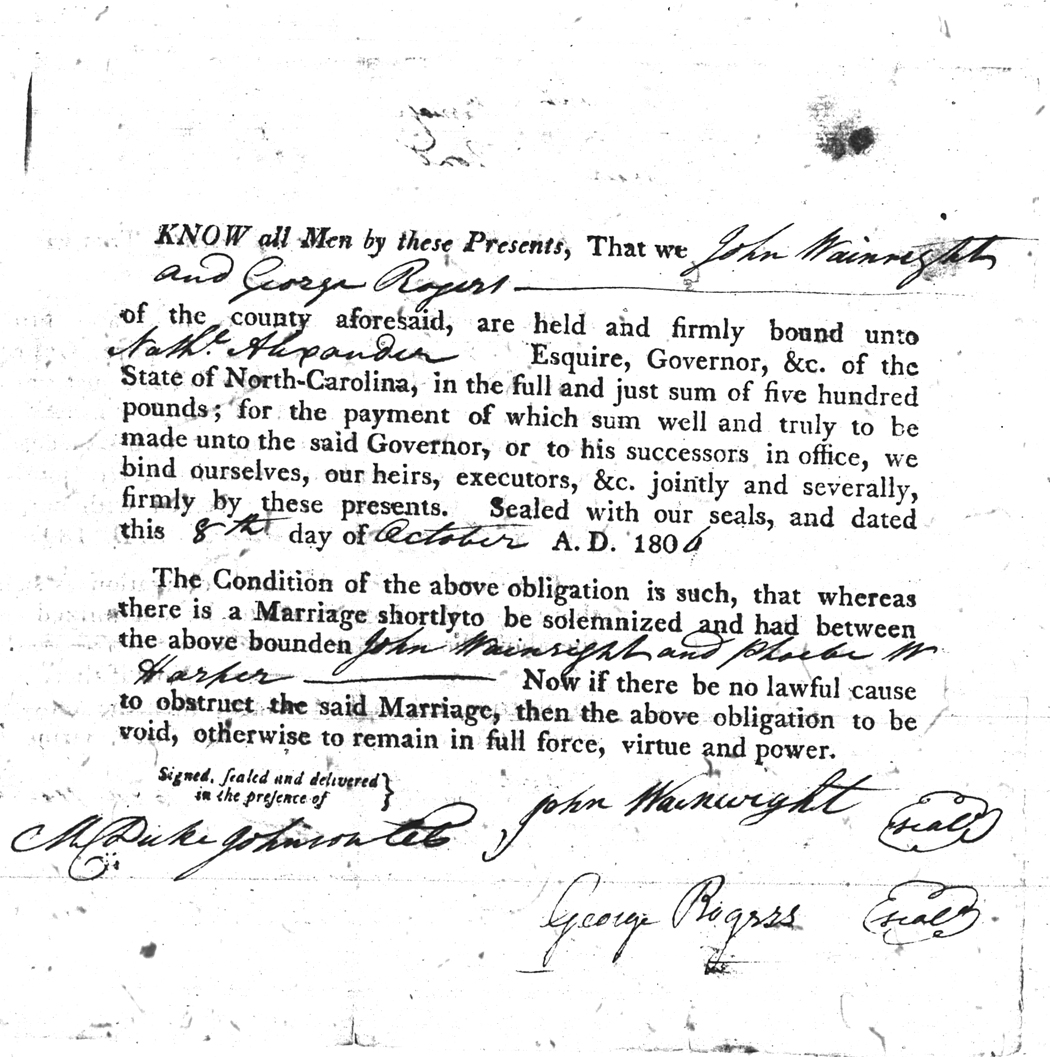 KNOW all Men by these Presents, That we John Wainright
and George Rogers
of the county aforesaid, are held and firmly bound unto
Nathl. Alexander Esquire, Governor, &c. of the
State of North-Carolina, in the full and just sum of five hundred
pounds; for the payment of which sum well and truly to be
made unto the said Governor, or to his successors in office, we
bind ourselves, our heirs, executors, &c. jointly and severally,
firmly by these presents. Sealed with our seals, and dated
this 8th day of October A. D. 1806
The Condition of the above obligation is such, that whereas
there is a Marriage shortlyto be solemnized and had between
the above bounden John Wainright and Phoebe W
Harper Now if there be no lawful cause
to obstruct the said Marriage, then the above obligation to be
void, otherwise to remain in full force, virtue and power.
Signed, sealed and delivered }
in the presence of
John Wainwright seal
M Duke Johnson
George Rogers seal